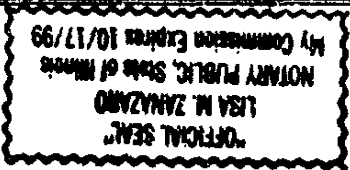 "OFFICIAL SEAL"
LISA M. ZANAZARO
NOTARY PUBLIC, State of Illinois
My Commission Expires 10/17/99